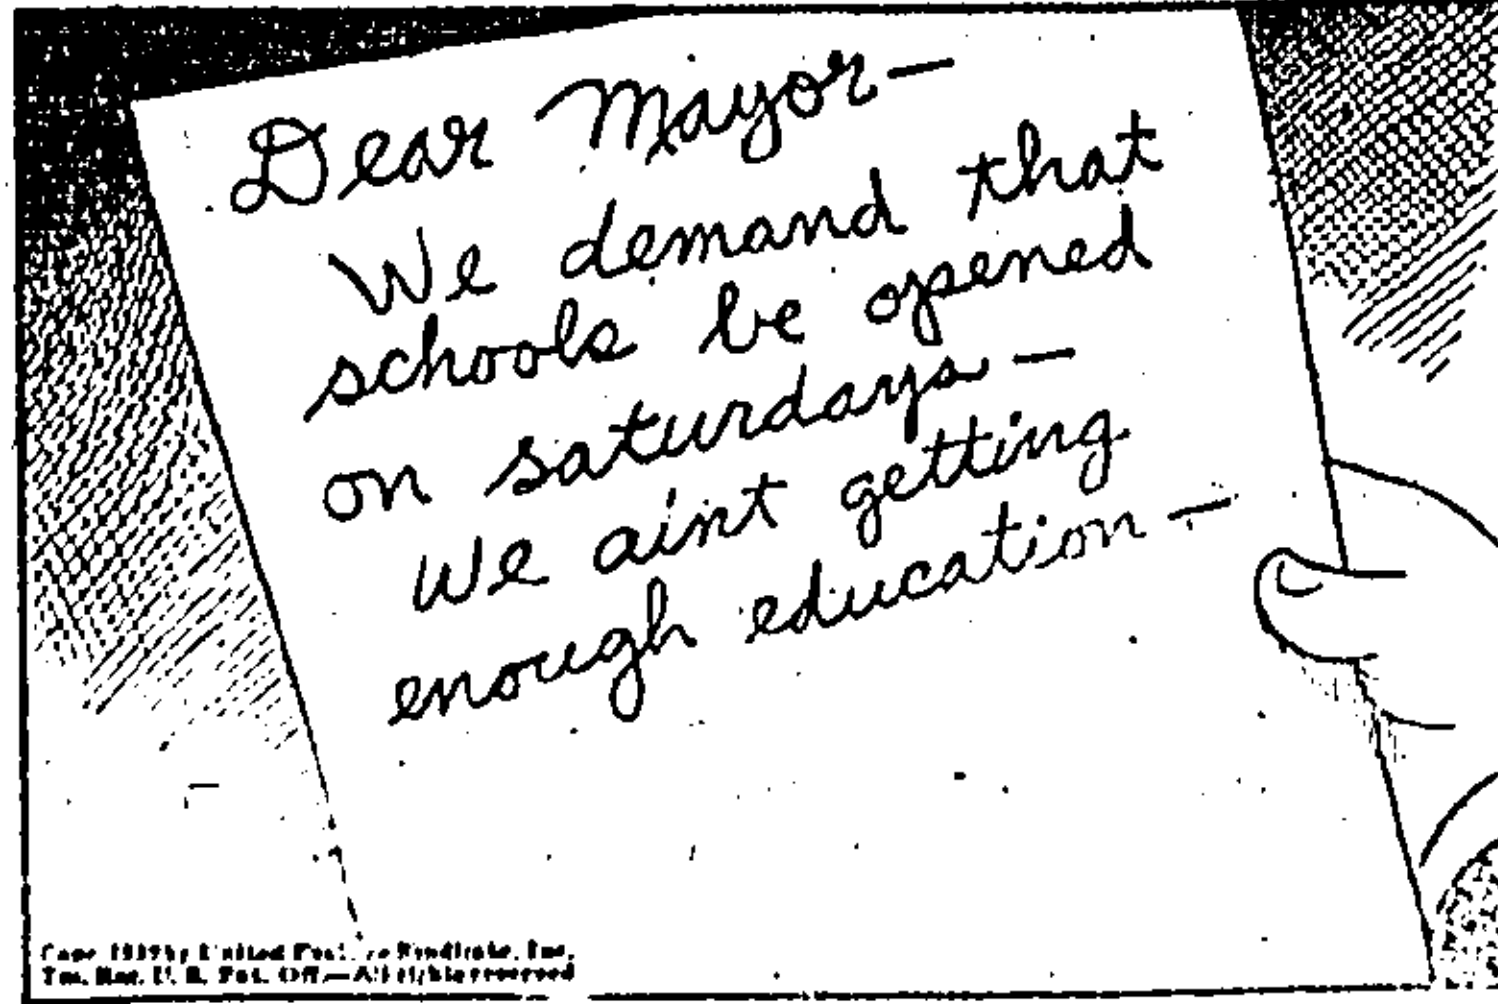 Dear Mayor—
We demand that
schools be opened
on saturdays—
We aint getting
enough education—
Copr. 1939 by United Feature Syndicate, Inc.
Tm. Reg. U. S. Pat. Off.—All rights reserved